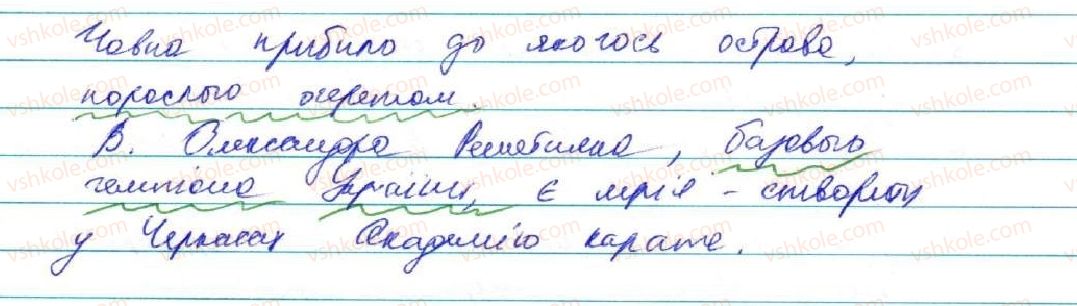 Човна прибило до якогось острова,
порослого очеретом.
В. Олександра Решетилка, базового
чемпіона України, є мрія - створити
у Черкасах Академію карате.